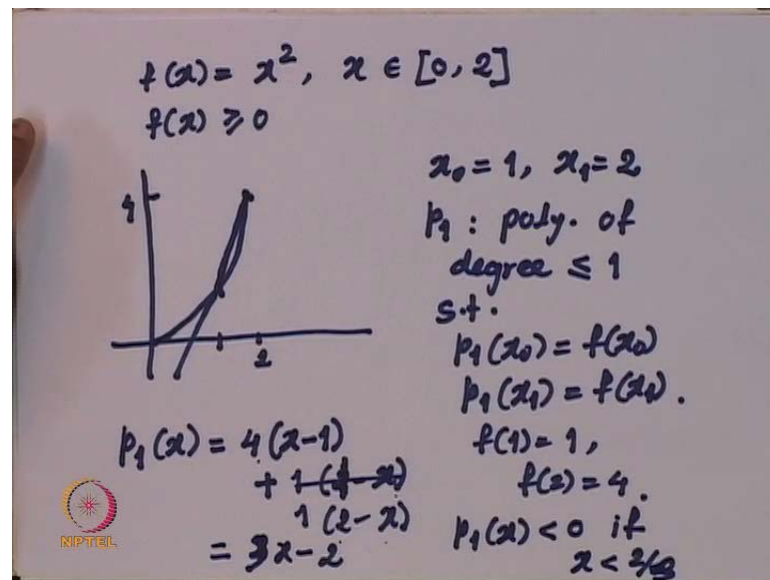 f(x) = x², x ∈ [0, 2]
f(x) ≥ 0
4
2
x₀ = 1, x₁ = 2
p₁ : poly. of
degree ≤ 1
s.t.
p₁(x₀) = f(x₀)
p₁(x₁) = f(x₁).
f(1) = 1,
f(2) = 4.
p₁(x) < 0 if
x < 2/3
p₁(x) = 4(x-1)
+
1(2-x)
= 3x-2
NPTEL